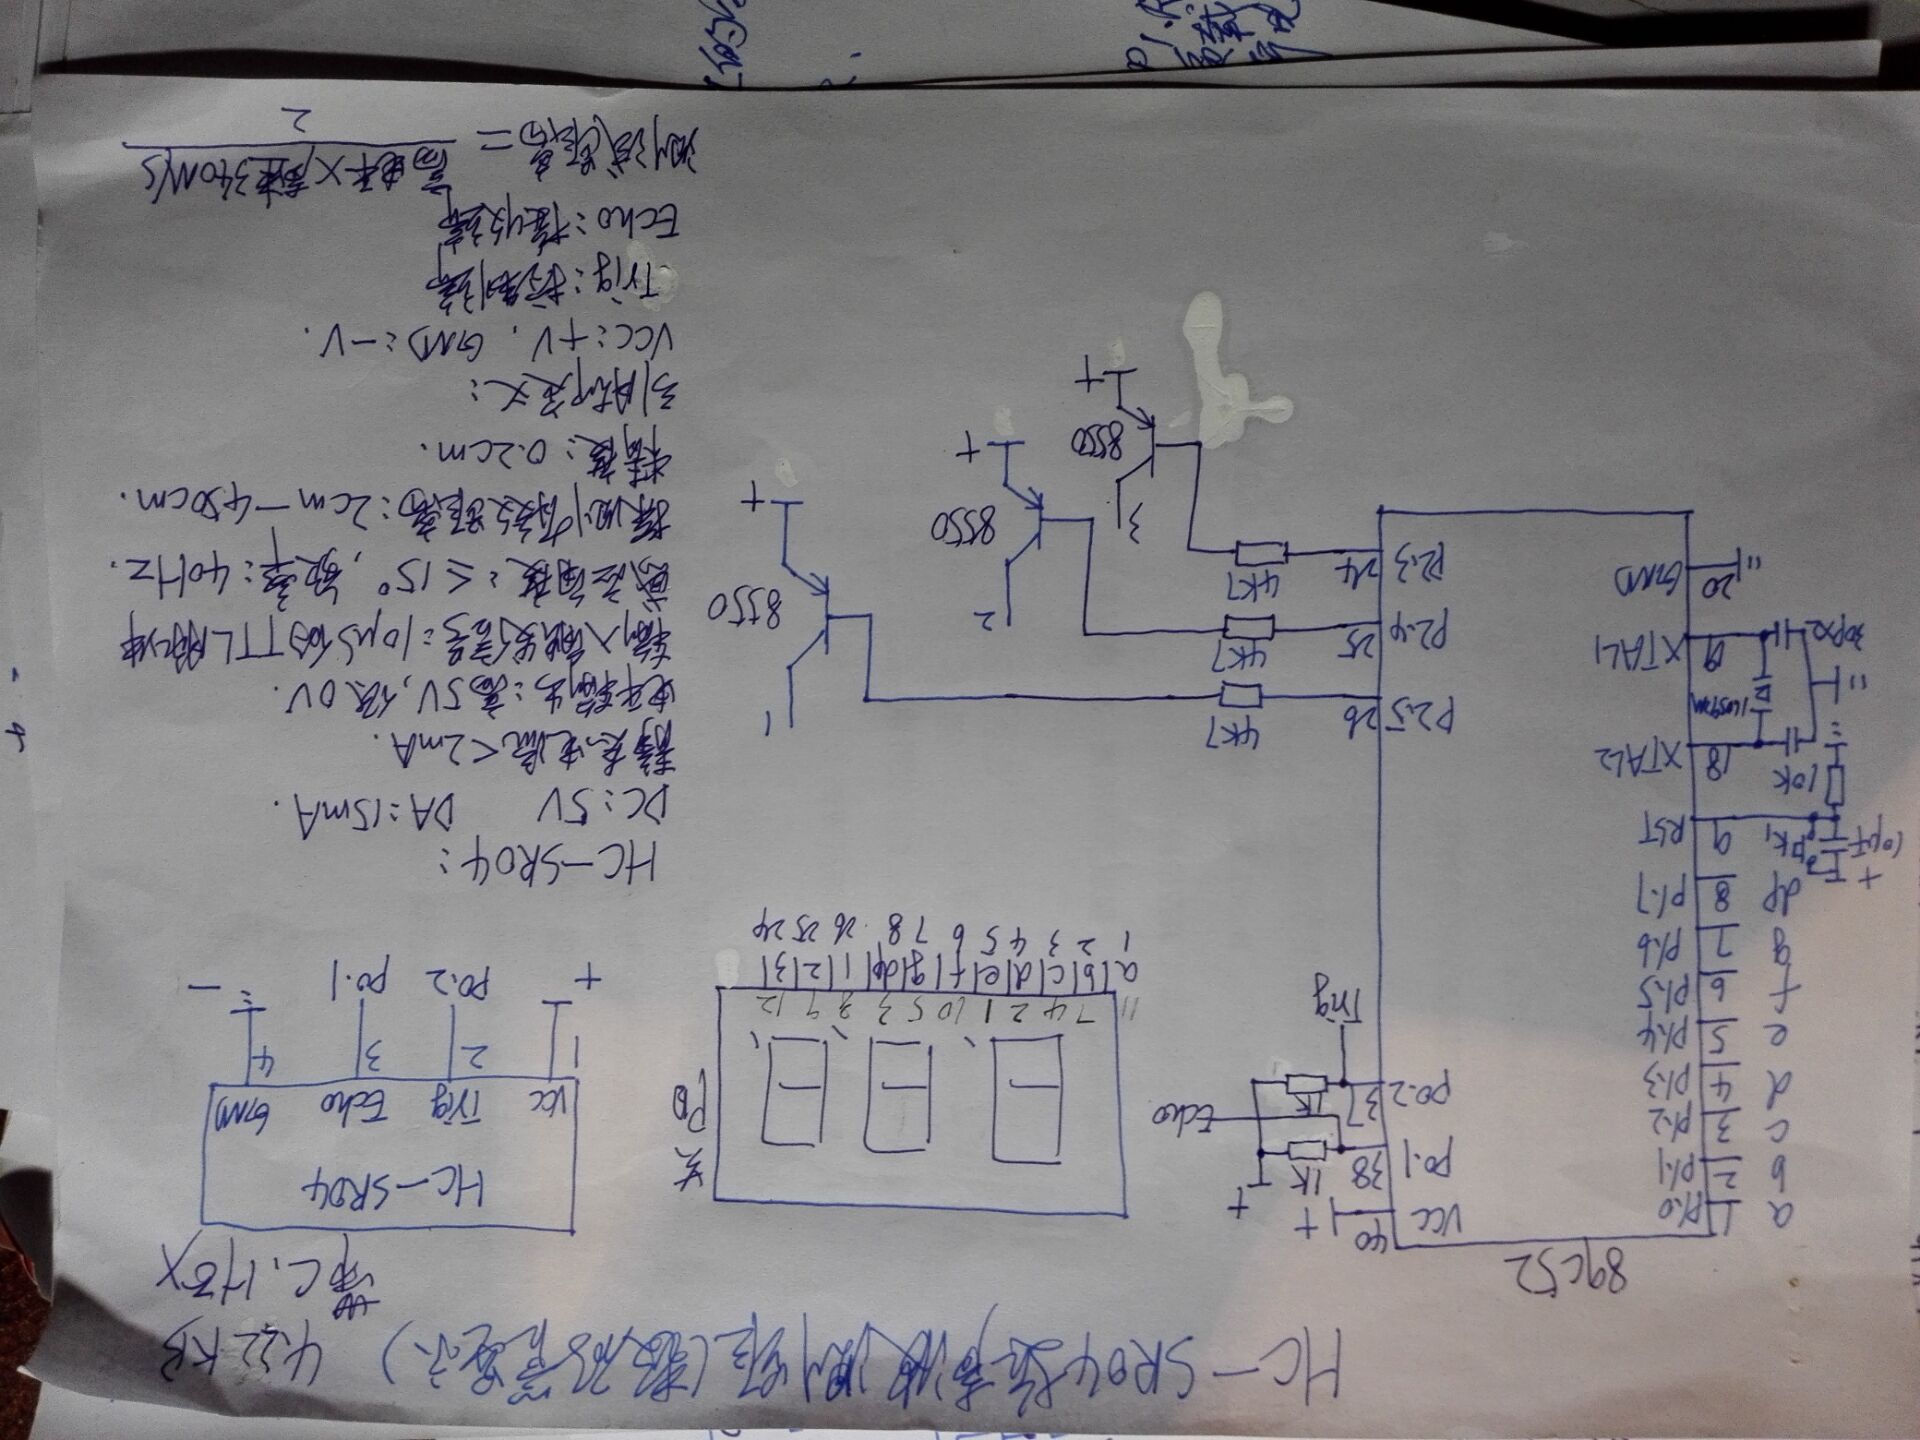 HC-SR04超声波测距(数码管显示) 4.22KB
带C.HEX
89C52
a 1 P1.0
b 2 P1.1
c 3 P1.2
d 4 P1.3
e 5 P1.4
f 6 P1.5
g 7 P1.6
dp 8 P1.7
RST 9
XTAL2 18
XTAL1 19
GND 20
10μF
10K
30PX2
VCC 40 +
P0.1 38 1K +
P0.2 37 1K
Echo
Trig
P2.5 26 4K7
P2.4 25 4K7
P2.3 24 4K7
8550 + 1
8550 + 2
8550 + 3
共阳
11 7 4 2 1 10 5 3 8 9 12
a b c d e f g dp 1 2 3
1 2 3 4 5 6 7 8 26 25 24
HC-SR04
VCC Trig Echo GND
1 2 3 4
+ P0.2 P0.1 -
HC-SR04:
DC:5V DA:15mA.
静态电流<2mA.
电平输出:高5V,低0V.
输入触发信号:10μS的TTL脉冲
感应角度:≤15°,频率:40Hz.
探测有效距离:2cm-450cm.
精度:0.2cm.
引脚定义:
VCC:+V, GND:-V.
Trig:控制端
Echo:接收端
测试距离=高电平X声速340M/S
2